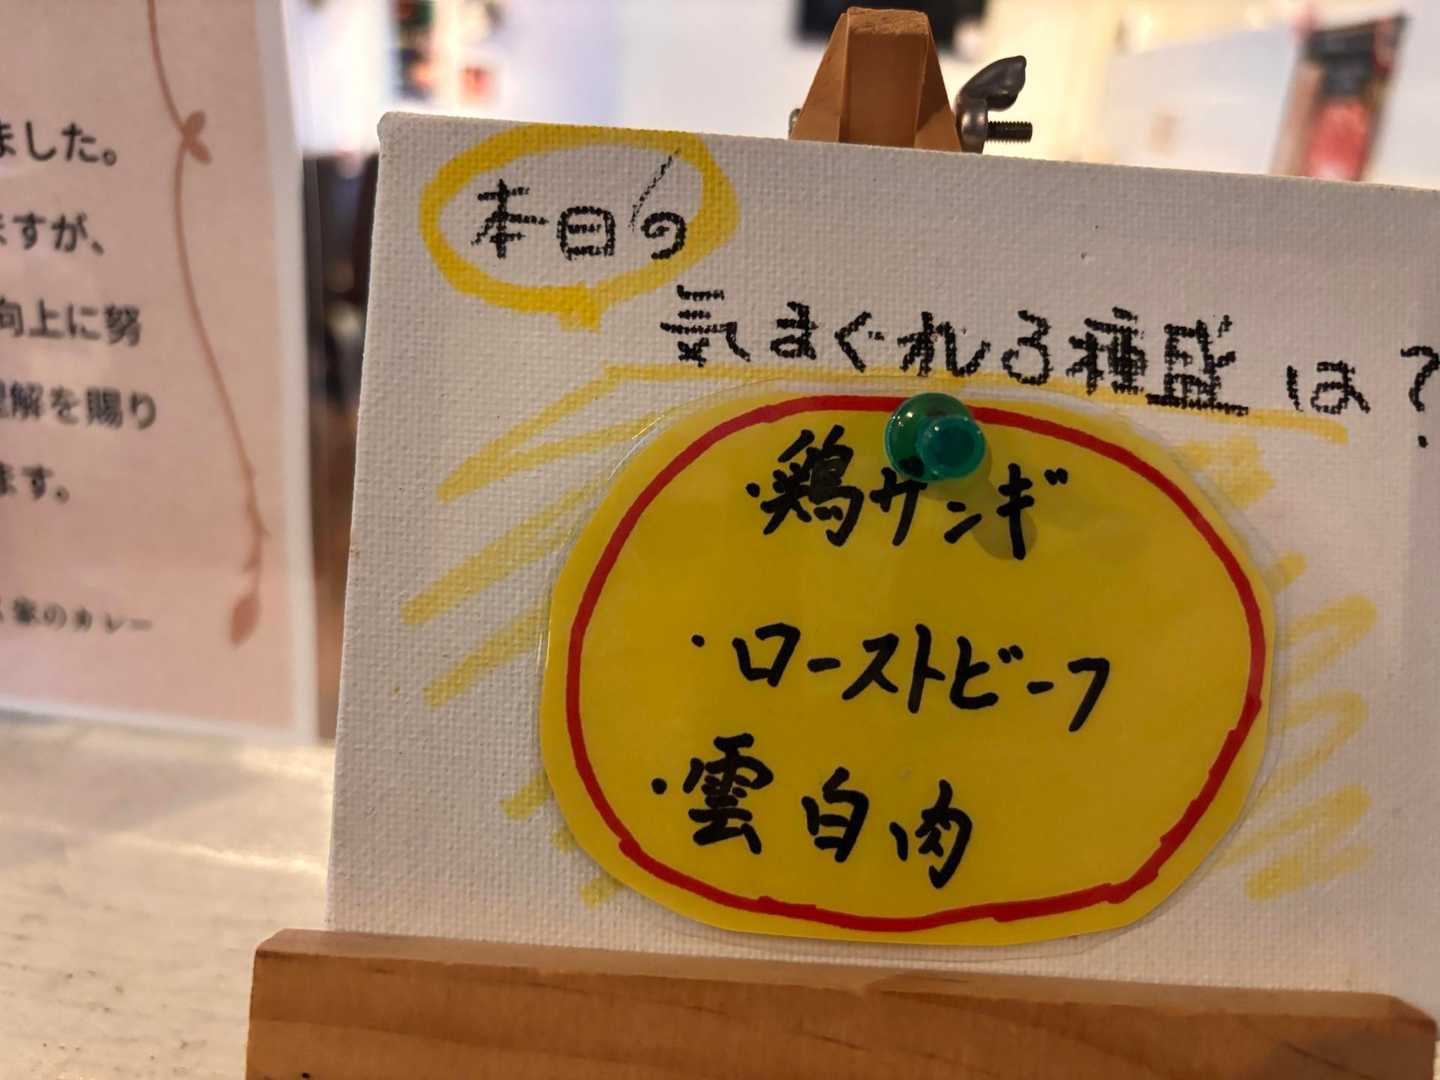 ました。
ますが、
向上に努
理解を賜り
ます。
家のカレー
本日の
気まぐれ3種盛は?
・鶏サンギ
・ローストビーフ
・雲白肉